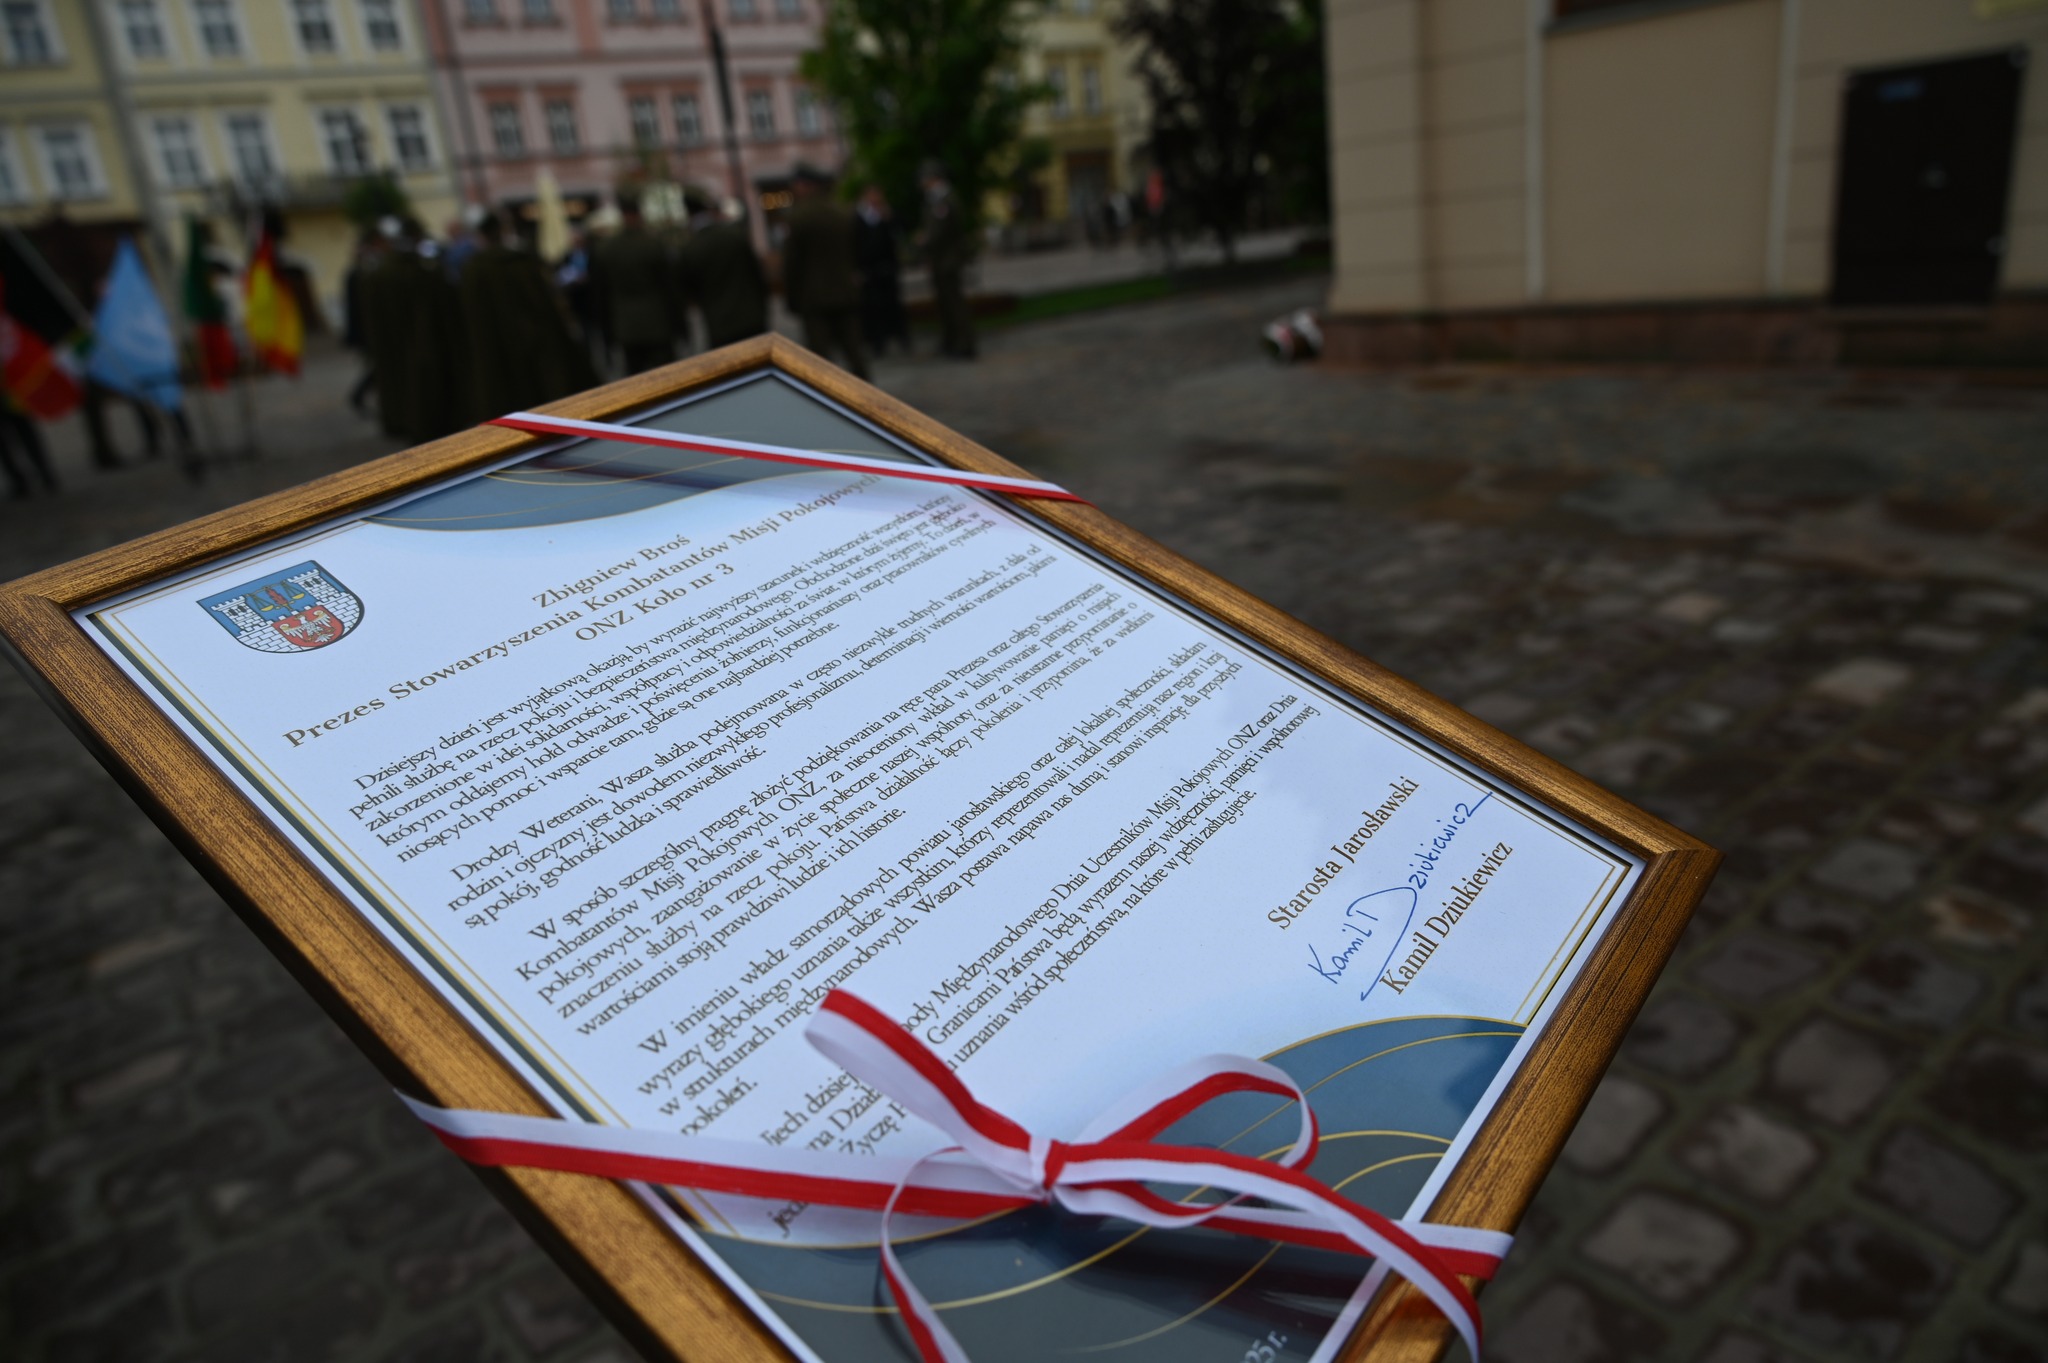 Zbigniew Broś
Prezes Stowarzyszenia Kombatantów Misji Pokojowych
ONZ Koło nr 3
Dzisiejszy dzień jest wyjątkową okazją, by wyrazić najwyższy szacunek i wdzięczność wszystkim, którzy
pełnili służbę na rzecz pokoju i bezpieczeństwa międzynarodowego. Obchodzone dziś święto jest głęboko
zakorzenione w idei solidarności, współpracy i odpowiedzialności za świat, w którym żyjemy. To dzień, w
którym oddajemy hołd odwadze i poświęceniu żołnierzy, funkcjonariuszy oraz pracowników cywilnych
niosących pomoc i wsparcie tam, gdzie są one najbardziej potrzebne.
Drodzy Weterani, Wasza służba podejmowana w często niezwykle trudnych warunkach, z dala od
rodzin i ojczyzny jest dowodem niezwykłego profesjonalizmu, determinacji i wierności wartościom, jakimi
są pokój, godność ludzka i sprawiedliwość.
W sposób szczególny pragnę złożyć podziękowania na ręce pana Prezesa oraz całego Stowarzyszenia
Kombatantów Misji Pokojowych ONZ, za nieoceniony wkład w kultywowanie pamięci o misjach
pokojowych, zaangażowanie w życie społeczne naszej wspólnoty oraz za nieustanne przypominanie o
znaczeniu służby na rzecz pokoju. Państwa działalność łączy pokolenia i przypomina, że za wielkimi
wartościami stoją prawdziwi ludzie i ich historie.
W imieniu władz samorządowych powiatu jarosławskiego oraz całej lokalnej społeczności, składam
wyrazy głębokiego uznania także wszystkim, którzy reprezentowali i nadal reprezentują nasz region i kraj
w strukturach międzynarodowych. Wasza postawa napawa nas dumą i stanowi inspirację dla przyszłych
pokoleń.
Niech dzisiej ody Międzynarodowego Dnia Uczestników Misji Pokojowych ONZ oraz Dnia
na Dział Granicami Państwa będą wyrazem naszej wdzięczności, pamięci i wspólnotowej
Życzę uznania wśród społeczeństwa, na które w pełni zasługujecie.
Starosta Jarosławski
Kamil Dziukiewicz
Kamil Dziukiewicz
25 r.